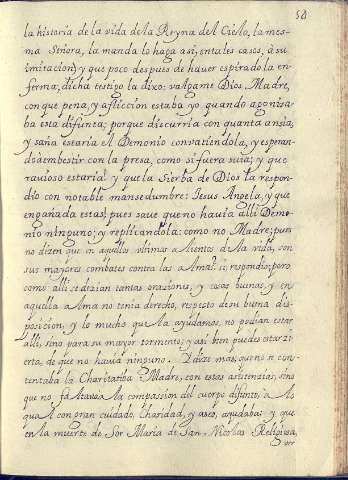 58
la historia de la vida de la Reyna del Cielo, la mes-
ma Señora, la manda lo haga asi, en tales casos, à su
imitacion; y que poco despues de haver espirado la en-
ferma, dicha testigo la dixo: valgame Dios, Madre,
con que pena, y afliccion estaba yo quando agoniza-
ba esta difunta; porque discurria con quanta ansia,
y saña estaria el Demonio convatiendola, y esperan-
do à embestir con la presa, como si fuera suia; y que
ravioso estaria! y que la Sierba de Dios la respon-
dio con notable mansedumbre: Jesus Angela, y que
engañada estas, pues save que no havia alli Demo-
nio ninguno; y replicandola: como no Madre; pues
no dizen que en aquellos ultimos alientos de la vida, son
sus maiores combates contra las almas? si respondio; pero
como alli se dezian tantas oraciones, y cosas buenas, y en
aquella alma no tenia derecho, respeto de su buena dis-
posicion, y lo mucho que la ayudamos, no podian estar
alli, sino para su mayor tormento; y asi bien puedes estar zi-
erta, de que no havia ninguno. Y dize mas, que no se con-
tentaba la Charitativa Madre, con estas asistencias, sino
que no faltava à la compassion del cuerpo difunto, à los
qual con gran cuidado, Charidad, y aseo, ayudaba; y que
en la muerte de Sor Maria de San Nicolas Religiosa,